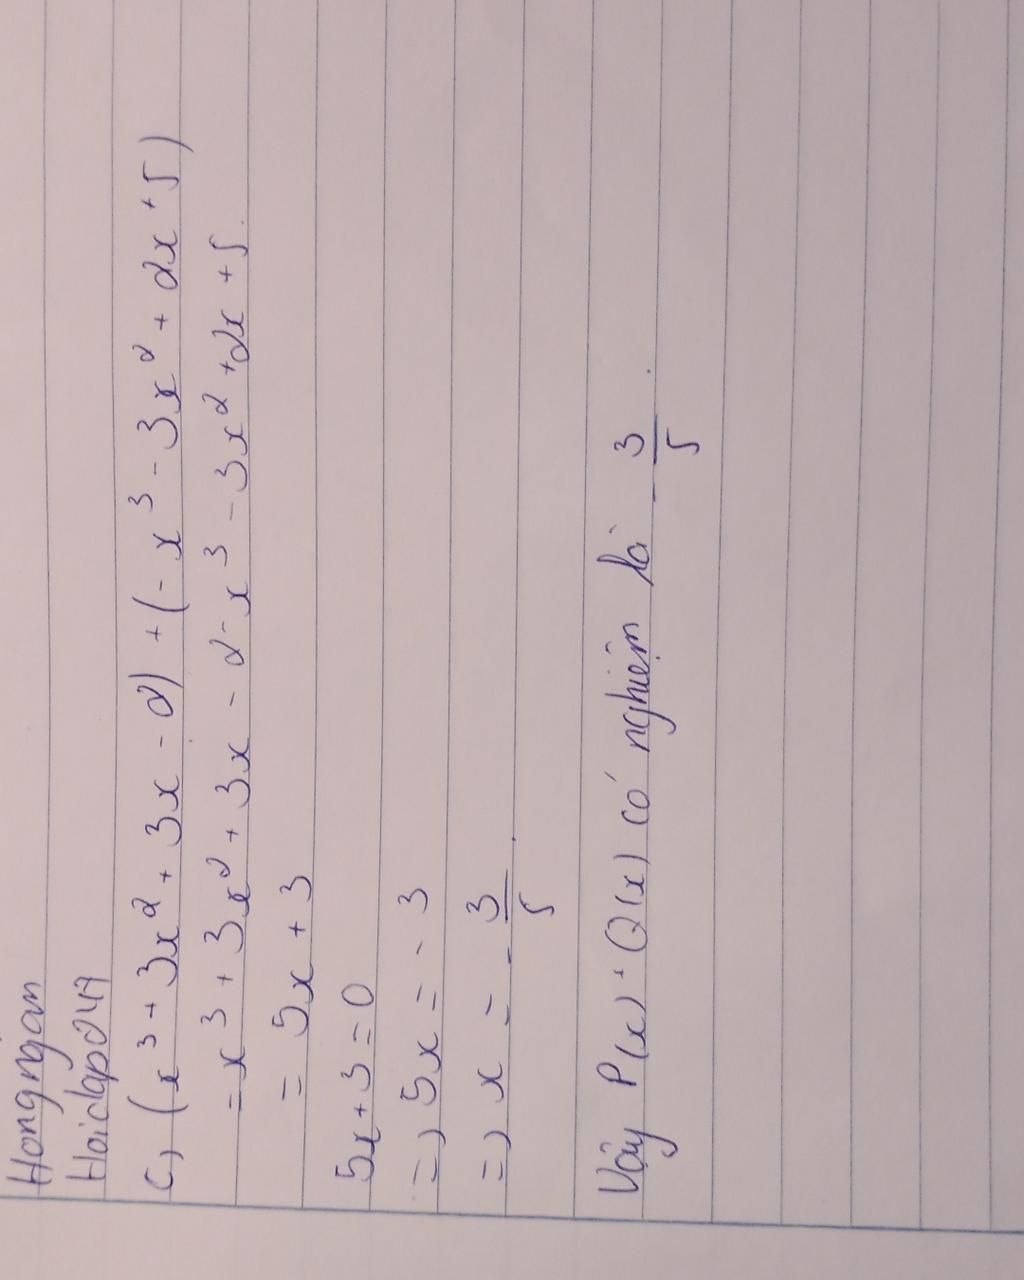 Hongngan
Hoidap247
c, (x³ + 3x² + 3x - 2) + (- x³ - 3x² + 2x + 5)
= x³ + 3x² + 3x - 2 - x³ - 3x² + 2x + 5.
= 5x + 3
5x + 3 = 0
=) 5x = - 3
=) x = - 3/5.
Vậy P(x) + Q(x) có nghiệm là - 3/5.